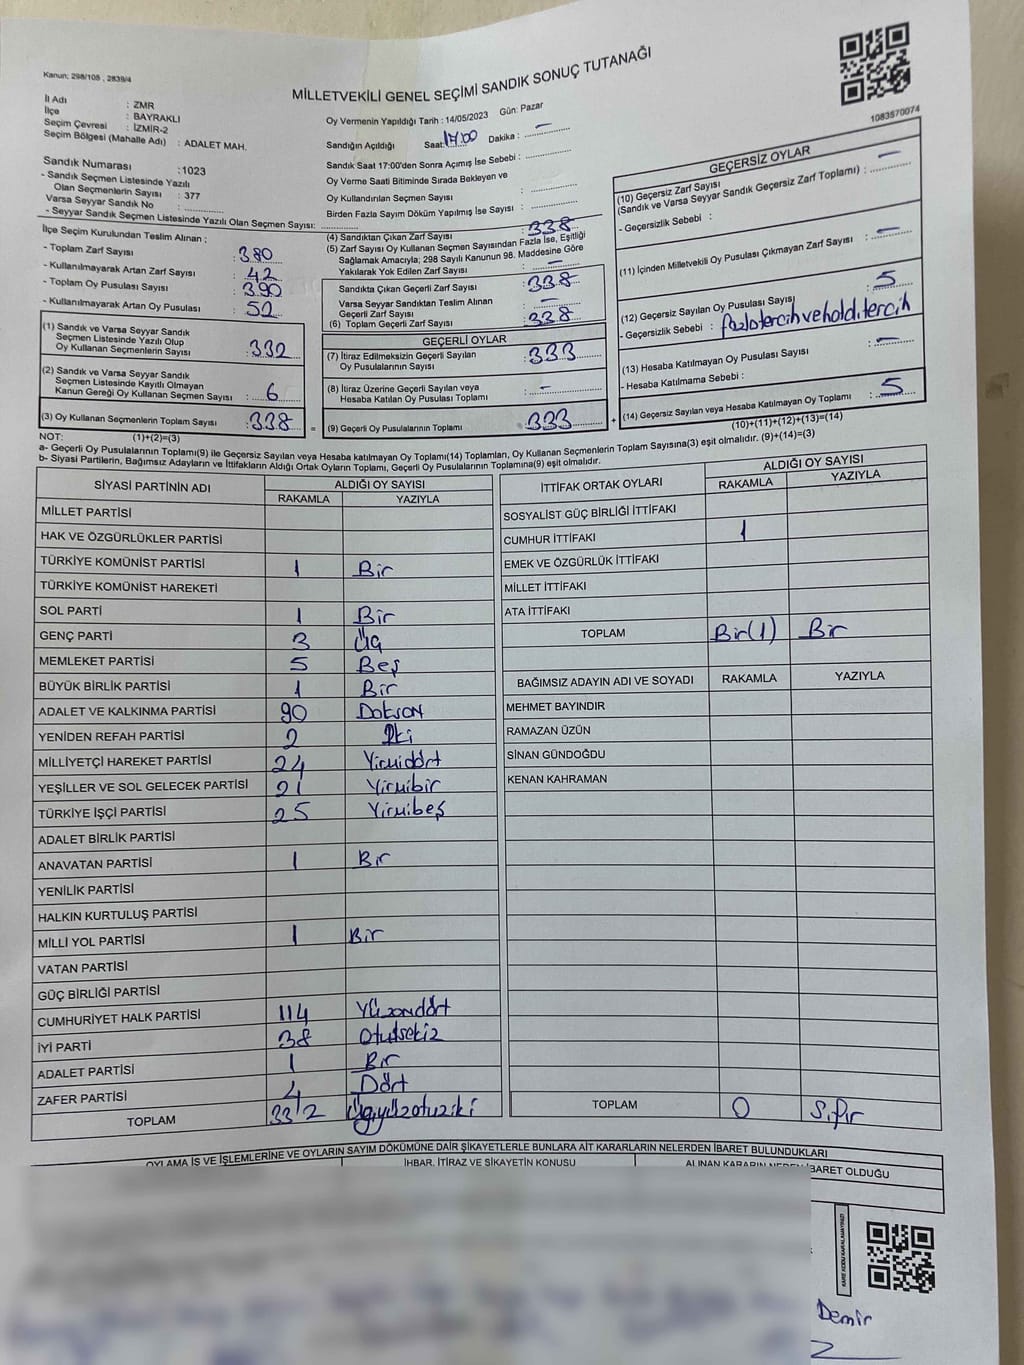 Kanun: 298/105 , 2839/4
MİLLETVEKİLİ GENEL SEÇİMİ SANDIK SONUÇ TUTANAĞI
1083570074
İl Adı : ZMR
İlçe : BAYRAKLI
Seçim Çevresi : İZMİR-2
Seçim Bölgesi (Mahalle Adı) : ADALET MAH.
Sandık Numarası : 1023
- Sandık Seçmen Listesinde Yazılı
Olan Seçmenlerin Sayısı : 377
Varsa Seyyar Sandık No :
- Seyyar Sandık Seçmen Listesinde Yazılı Olan Seçmen Sayısı:
Oy Vermenin Yapıldığı Tarih : 14/05/2023 Gün: Pazar
Sandığın Açıldığı Saat: 17:00 Dakika : —
Sandık Saat 17:00'den Sonra Açımış İse Sebebi :
Oy Verme Saati Bitiminde Sırada Bekleyen ve
Oy Kullandırılan Seçmen Sayısı :
Birden Fazla Sayım Döküm Yapılmış İse Sayısı :
İlçe Seçim Kurulundan Teslim Alınan ;
- Toplam Zarf Sayısı : 380
- Kullanılmayarak Artan Zarf Sayısı : 42
- Toplam Oy Pusulası Sayısı : 390
- Kullanılmayarak Artan Oy Pusulası : 52
(1) Sandık ve Varsa Seyyar Sandık
Seçmen Listesinde Yazılı Olup
Oy Kullanan Seçmenlerin Sayısı : 332
(2) Sandık ve Varsa Seyyar Sandık
Seçmen Listesinde Kayıtlı Olmayan
Kanun Gereği Oy Kullanan Seçmen Sayısı : 6
(3) Oy Kullanan Seçmenlerin Toplam Sayısı : 338
(4) Sandıktan Çıkan Zarf Sayısı : 338
(5) Zarf Sayısı Oy Kullanan Seçmen Sayısından Fazla İse, Eşitliği
Sağlamak Amacıyla; 298 Sayılı Kanunun 98. Maddesine Göre
Yakılarak Yok Edilen Zarf Sayısı : —
Sandıkta Çıkan Geçerli Zarf Sayısı : 338
Varsa Seyyar Sandıktan Teslim Alınan
Geçerli Zarf Sayısı : —
(6) Toplam Geçerli Zarf Sayısı : 338
GEÇERLİ OYLAR
(7) İtiraz Edilmeksizin Geçerli Sayılan
Oy Pusulalarının Sayısı : 333
(8) İtiraz Üzerine Geçerli Sayılan veya
Hesaba Katılan Oy Pusulası Toplamı : —
= (9) Geçerli Oy Pusulalarının Toplamı : 333
GEÇERSİZ OYLAR
(10) Geçersiz Zarf Sayısı
(Sandık ve Varsa Seyyar Sandık Geçersiz Zarf Toplamı) : —
- Geçersizlik Sebebi :
(11) İçinden Milletvekili Oy Pusulası Çıkmayan Zarf Sayısı : —
(12) Geçersiz Sayılan Oy Pusulası Sayısı : 5
- Geçersizlik Sebebi : fazla tercih ve hatalı tercih
(13) Hesaba Katılmayan Oy Pusulası Sayısı : —
- Hesaba Katılmama Sebebi :
+ (14) Geçersiz Sayılan veya Hesaba Katılmayan Oy Toplamı : 5
(10)+(11)+(12)+(13)=(14)
NOT: (1)+(2)=(3)
a- Geçerli Oy Pusulalarının Toplamı(9) ile Geçersiz Sayılan veya Hesaba katılmayan Oy Toplamı(14) Toplamları, Oy Kullanan Seçmenlerin Toplam Sayısına(3) eşit olmalıdır. (9)+(14)=(3)
b- Siyasi Partilerin, Bağımsız Adayların ve İttifakların Aldığı Ortak Oyların Toplamı, Geçerli Oy Pusulalarının Toplamına(9) eşit olmalıdır.
SİYASİ PARTİNİN ADI ALDIĞI OY SAYISI
RAKAMLA YAZIYLA
MİLLET PARTİSİ
HAK VE ÖZGÜRLÜKLER PARTİSİ
TÜRKİYE KOMÜNİST PARTİSİ 1 Bir
TÜRKİYE KOMÜNİST HAREKETİ
SOL PARTİ 1 Bir
GENÇ PARTİ 3 Üç
MEMLEKET PARTİSİ 5 Beş
BÜYÜK BİRLİK PARTİSİ 1 Bir
ADALET VE KALKINMA PARTİSİ 90 Doksan
YENİDEN REFAH PARTİSİ 2 İki
MİLLİYETÇİ HAREKET PARTİSİ 24 Yirmidört
YEŞİLLER VE SOL GELECEK PARTİSİ 21 Yirmibir
TÜRKİYE İŞÇİ PARTİSİ 25 Yirmibeş
ADALET BİRLİK PARTİSİ
ANAVATAN PARTİSİ 1 Bir
YENİLİK PARTİSİ
HALKIN KURTULUŞ PARTİSİ
MİLLİ YOL PARTİSİ 1 Bir
VATAN PARTİSİ
GÜÇ BİRLİĞİ PARTİSİ
CUMHURİYET HALK PARTİSİ 114 Yüzondört
İYİ PARTİ 38 Otuzsekiz
ADALET PARTİSİ 1 Bir
ZAFER PARTİSİ 4 Dört
TOPLAM 332 Üçyüzotuziki
İTTİFAK ORTAK OYLARI ALDIĞI OY SAYISI
RAKAMLA YAZIYLA
SOSYALİST GÜÇ BİRLİĞİ İTTİFAKI
CUMHUR İTTİFAKI 1
EMEK VE ÖZGÜRLÜK İTTİFAKI
MİLLET İTTİFAKI
ATA İTTİFAKI
TOPLAM Bir(1) Bir
BAĞIMSIZ ADAYIN ADI VE SOYADI RAKAMLA YAZIYLA
MEHMET BAYINDIR
RAMAZAN ÜZÜN
SİNAN GÜNDOĞDU
KENAN KAHRAMAN
TOPLAM 0 Sıfır
OYLAMA İŞ VE İŞLEMLERİNE VE OYLARIN SAYIM DÖKÜMÜNE DAİR ŞİKAYETLERLE BUNLARA AİT KARARLARIN NELERDEN İBARET BULUNDUKLARI
İHBAR, İTİRAZ VE ŞİKAYETİN KONUSU ALINAN KARARIN NEDEN İBARET OLDUĞU
KARE KODU KARALAMAYINIZ!
Demir